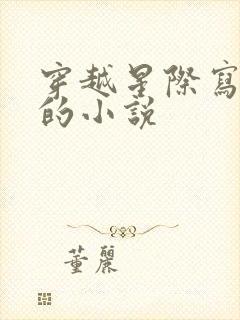 穿越星際寫
的小說
董麗